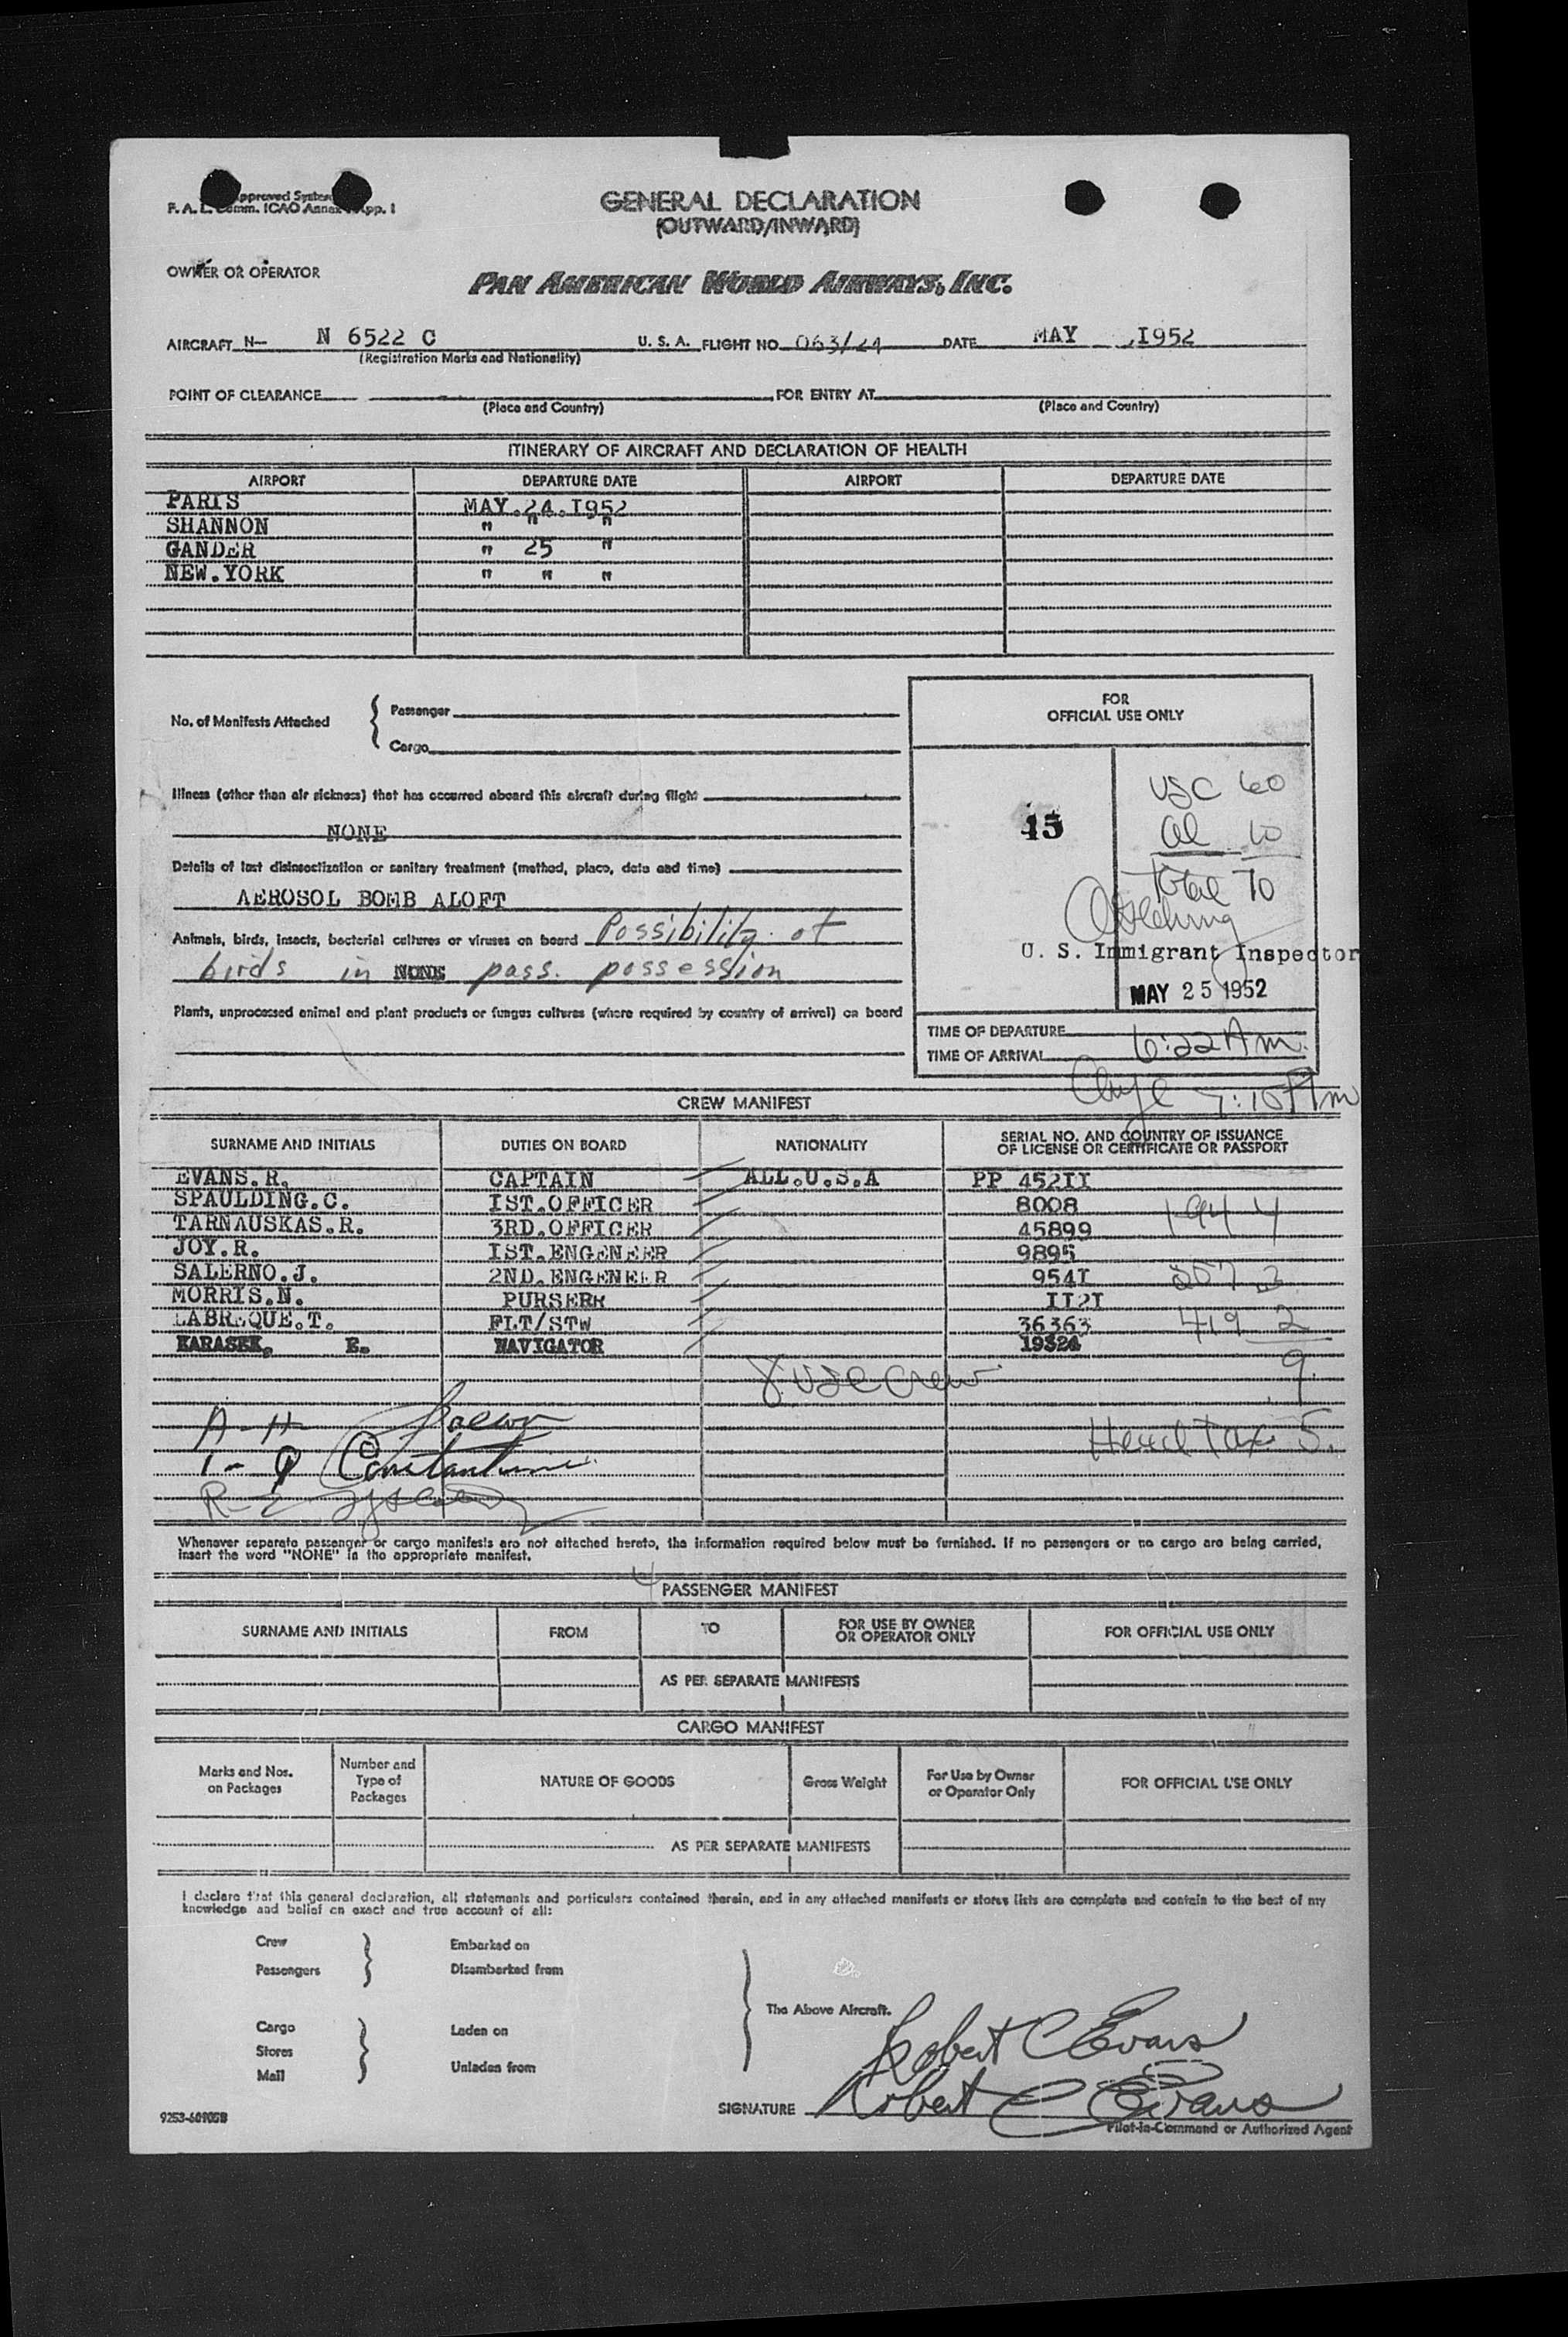 pproved System
F. A. L. Comm. ICAO Annex App. 1
GENERAL DECLARATION
(OUTWARD/INWARD)
OWNER OR OPERATOR
PAN AMERICAN WORLD AIRWAYS, INC.
AIRCRAFT N— N 6522 C U. S. A. FLIGHT NO. 063/24 DATE MAY ,I952
(Registration Marks and Nationality)
POINT OF CLEARANCE FOR ENTRY AT
(Place and Country) (Place and Country)
ITINERARY OF AIRCRAFT AND DECLARATION OF HEALTH
AIRPORT DEPARTURE DATE AIRPORT DEPARTURE DATE
PARIS MAY.24.I952
SHANNON " " "
GANDER " 25 "
NEW.YORK " " "
No. of Manifests Attached { Passenger
Cargo
FOR
OFFICIAL USE ONLY
Illness (other than air sickness) that has occurred aboard this aircraft during flight
NONE
Details of last disinsectization or sanitary treatment (method, place, date and time)
AEROSOL BOMB ALOFT
Animals, birds, insects, bacterial cultures or viruses on board Possibility of
birds in NONE pass. possession
Plants, unprocessed animal and plant products or fungus cultures (where required by country of arrival) on board
USC 60
45
al 10
Total 70
U. S. Immigrant Inspector
MAY 25 1952
TIME OF DEPARTURE
TIME OF ARRIVAL 6:22 Am.
7:10 Am
CREW MANIFEST
SURNAME AND INITIALS DUTIES ON BOARD NATIONALITY SERIAL NO. AND COUNTRY OF ISSUANCE
OF LICENSE OR CERTIFICATE OR PASSPORT
EVANS.R. CAPTAIN ALL.U.S.A PP 452II
SPAULDING.C. IST.OFFICER 8008
TARNAUSKAS.R. 3RD.OFFICER 45899 194 4
JOY.R. IST.ENGENEER 9895
SALERNO.J. 2ND.ENGENEER 954I 257 3
MORRIS.N. PURSERR II2I
LABREQUE.T. FLT/STW 36363 419 2
KARASEK, E. NAVIGATOR
8 USC Crew 9
A-H
Head Tax 5.
I-Q Constantine
R-Z
Whenever separate passenger or cargo manifests are not attached hereto, the information required below must be furnished. If no passengers or no cargo are being carried,
insert the word "NONE" in the appropriate manifest.
PASSENGER MANIFEST
SURNAME AND INITIALS FROM TO FOR USE BY OWNER
OR OPERATOR ONLY FOR OFFICIAL USE ONLY
AS PER SEPARATE MANIFESTS
CARGO MANIFEST
Marks and Nos.
on Packages Number and
Type of
Packages NATURE OF GOODS Gross Weight For Use by Owner
or Operator Only FOR OFFICIAL USE ONLY
AS PER SEPARATE MANIFESTS
I declare that this general declaration, all statements and particulars contained therein, and in any attached manifests or stores lists are complete and contain to the best of my
knowledge and belief an exact and true account of all:
Crew Embarked on
Passengers Disembarked from
The Above Aircraft.
Cargo Laden on
Stores
Mail Unladen from
Robert C Evans
SIGNATURE Robert C Evans
Pilot-in-Command or Authorized Agent